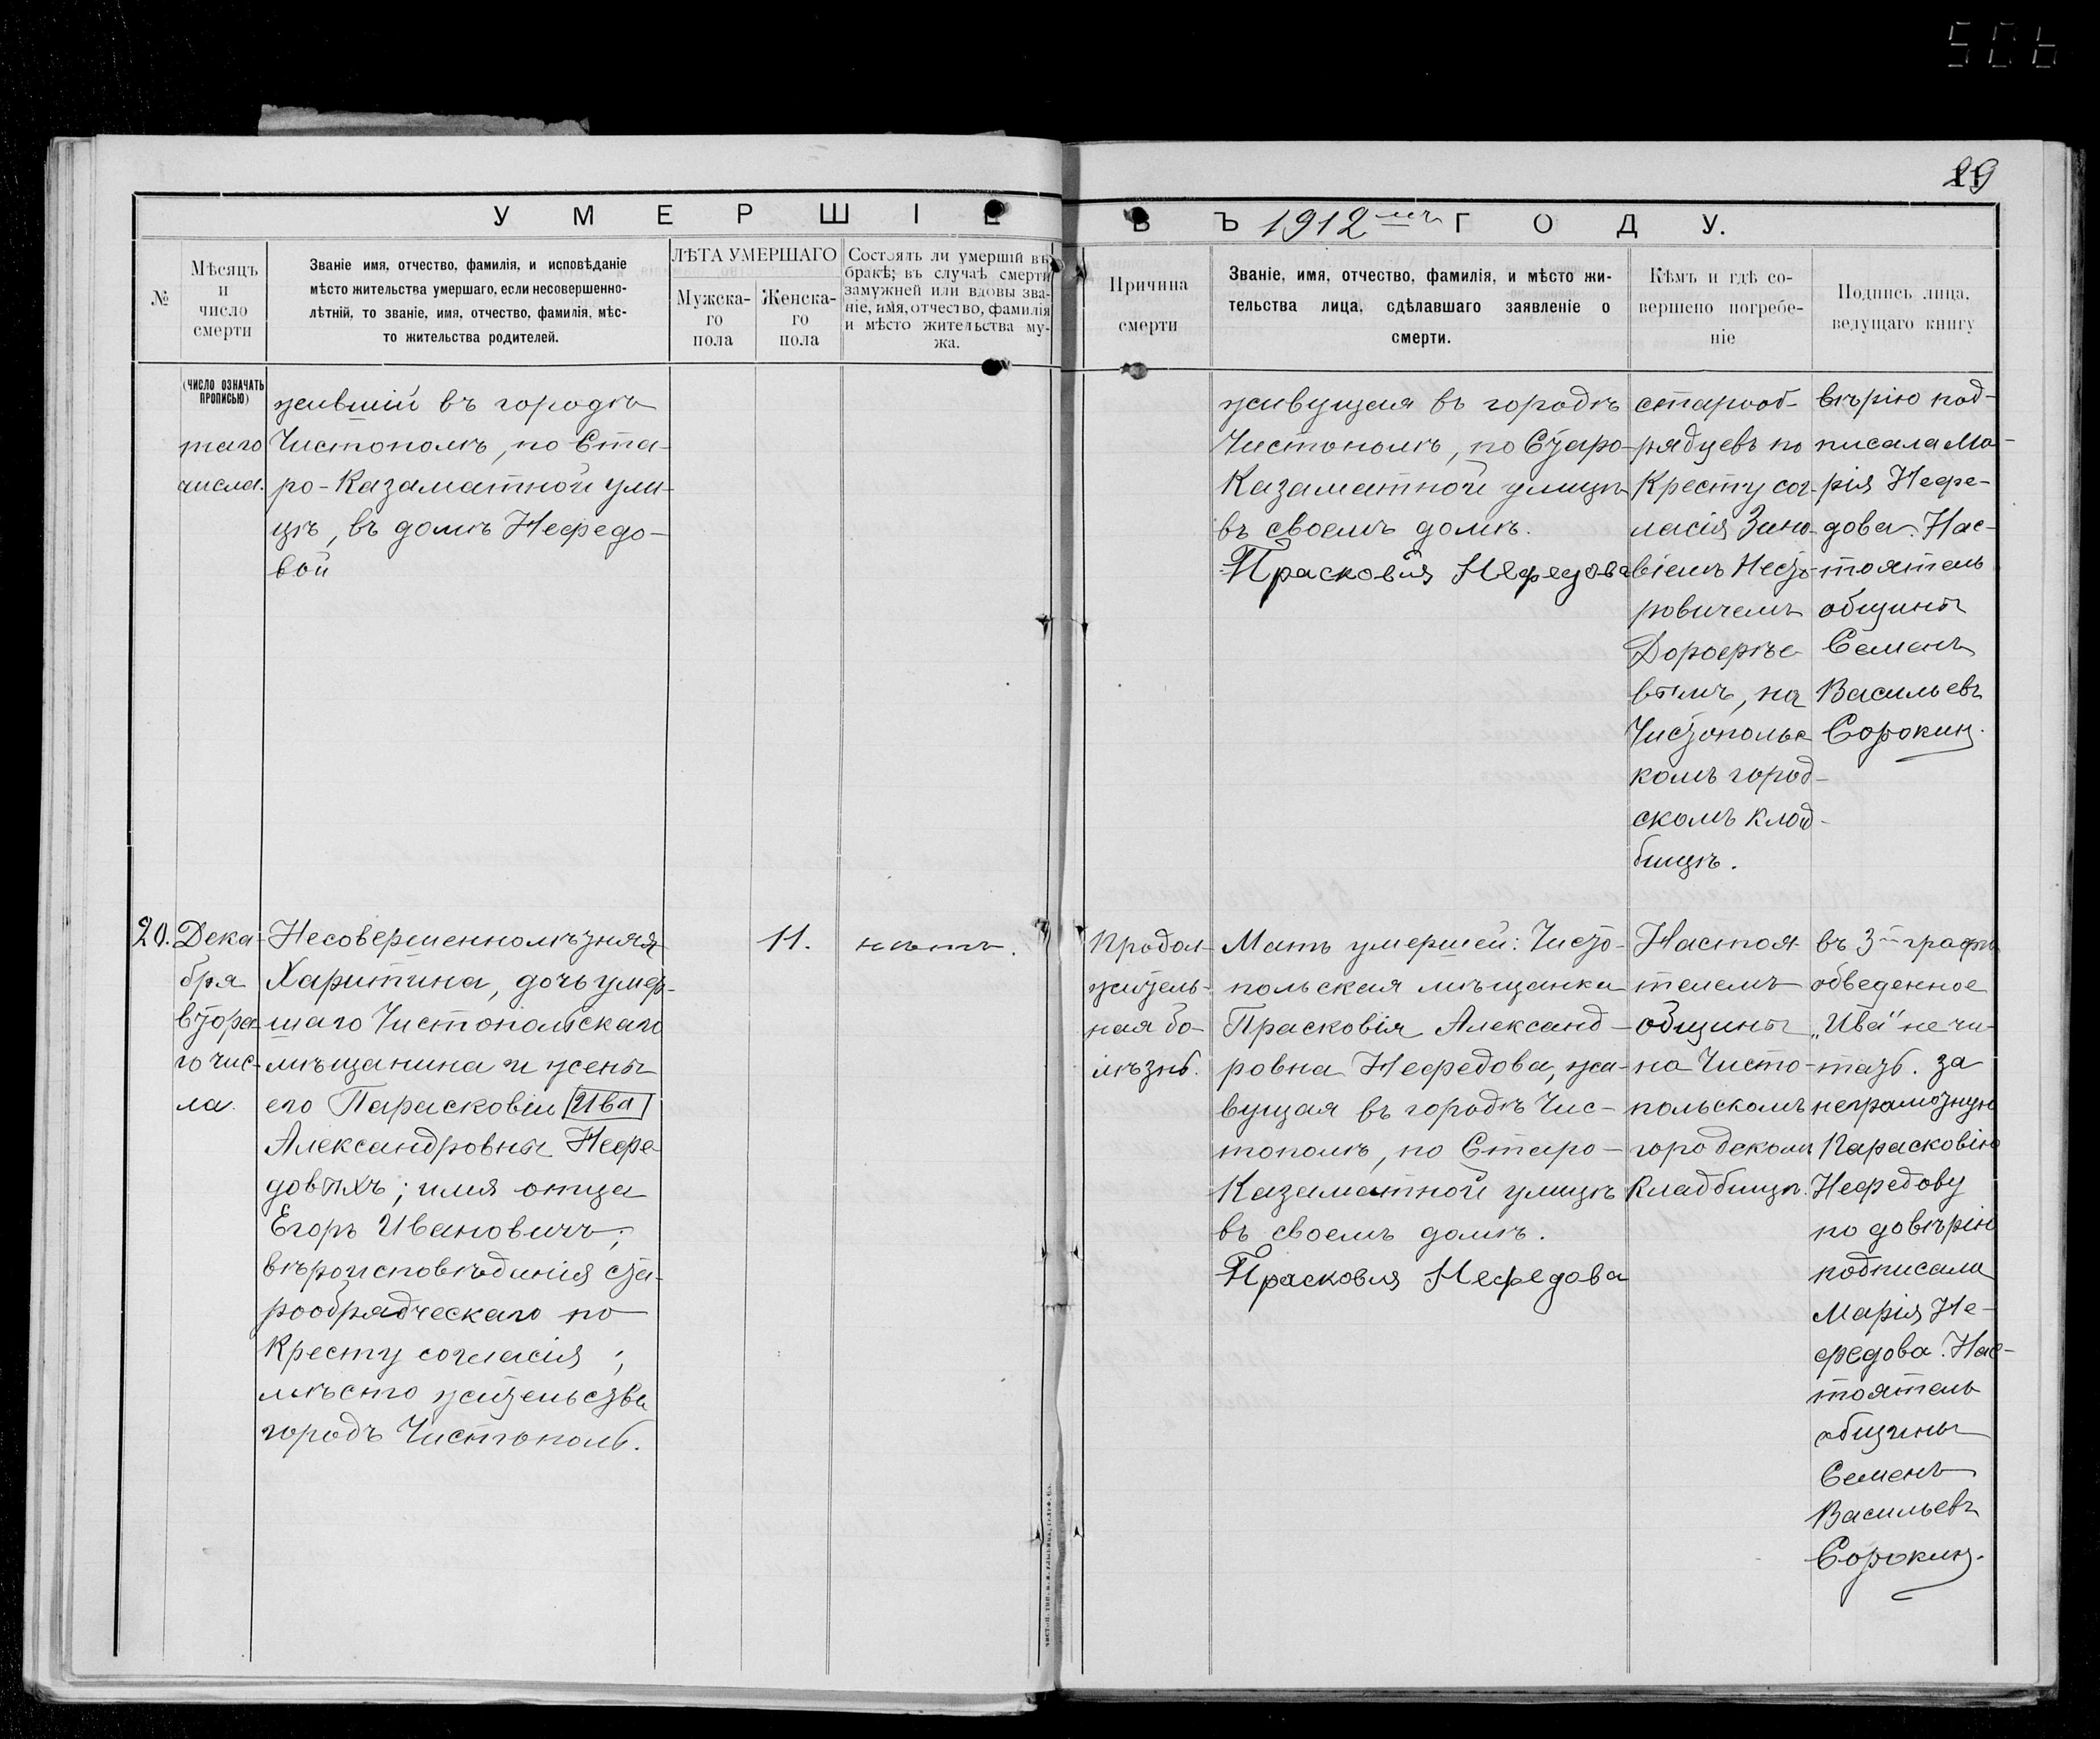 506
29
УМЕРШІЕ
ВЪ 1912мъ ГОДУ.
№
Мѣсяцъ
и
число
смерти
Званіе имя, отчество, фамилія, и исповѣданіе
мѣсто жительства умершаго, если несовершенно-
лѣтній, то званіе, имя, отчество, фамилія, мѣс-
то жительства родителей.
ЛѢТА УМЕРШАГО
Мужска-
го
пола
Женска-
го
пола
Состоялъ ли умершій въ
бракѣ; въ случаѣ смерти
замужней или вдовы зва-
ніе, имя, отчество, фамилія
и мѣсто жительства му-
жа.
Причина
смерти
Званіе, имя, отчество, фамилія, и мѣсто жи-
тельства лица, сдѣлавшаго заявленіе о
смерти.
Кѣмъ и гдѣ со-
вершено погребе-
ніе
Подпись лица,
ведущаго книгу
(ЧИСЛО ОЗНАЧАТЬ
ПРОПИСЬЮ)
таго
числа.
жившій въ городѣ
Чистополѣ, по Ста-
ро-Казаматной ули-
цѣ, въ домѣ Нефедо-
вой
живущая въ городѣ
Чистополѣ, по Старо-
Казаматной улицѣ
въ своемъ домѣ.
Прасковия Нефедова
старооб-
рядцевъ по
Кресту сог-
ласія Зино-
віемъ Несто-
ровичемъ
Дорофѣе-
вымъ, на
Чистопольс
комъ город-
скомъ клад-
бищѣ.
вѣрію под-
писала Ма-
рія Нефе-
дова. Нас-
тоятель
общины
Семенъ
Васильевъ
Сорокинъ.
20.
Дека-
бря
втора-
го чис-
ла.
Несовершеннолѣтняя
Харитина, дочь умер-
шаго Чистопольскаго
мѣщанина и жены
его Парасковіи Ива
Александровны Нефе
довыхъ; имя отца
Егоръ Ивановичъ;
вѣроисповѣданія ста-
рообрядческаго по
Кресту согласія;
мѣсто жительства
городъ Чистополь.
11.
нѣтъ.
Продол-
житель-
ная бо-
лѣзнь.
Мать умершей: Чисто-
польская мѣщанка
Прасковія Александ-
ровна Нефедова, жи-
вущая въ городѣ Чис-
тополѣ, по Старо-
Казаматной улицѣ
въ своемъ домѣ.
Прасковия Нефедова
Настоя-
телемъ
общины
на Чисто-
польскомъ
городскомъ
Кладбищѣ.
въ 3й графѣ
обведенное
„Ива" не чи-
тать. за
неграмотную
Парасковію
Нефедову
по довѣрію
подписала
Марія Не-
федова. Нас-
тоятель
общины
Семенъ
Васильевъ
Сорокинъ.